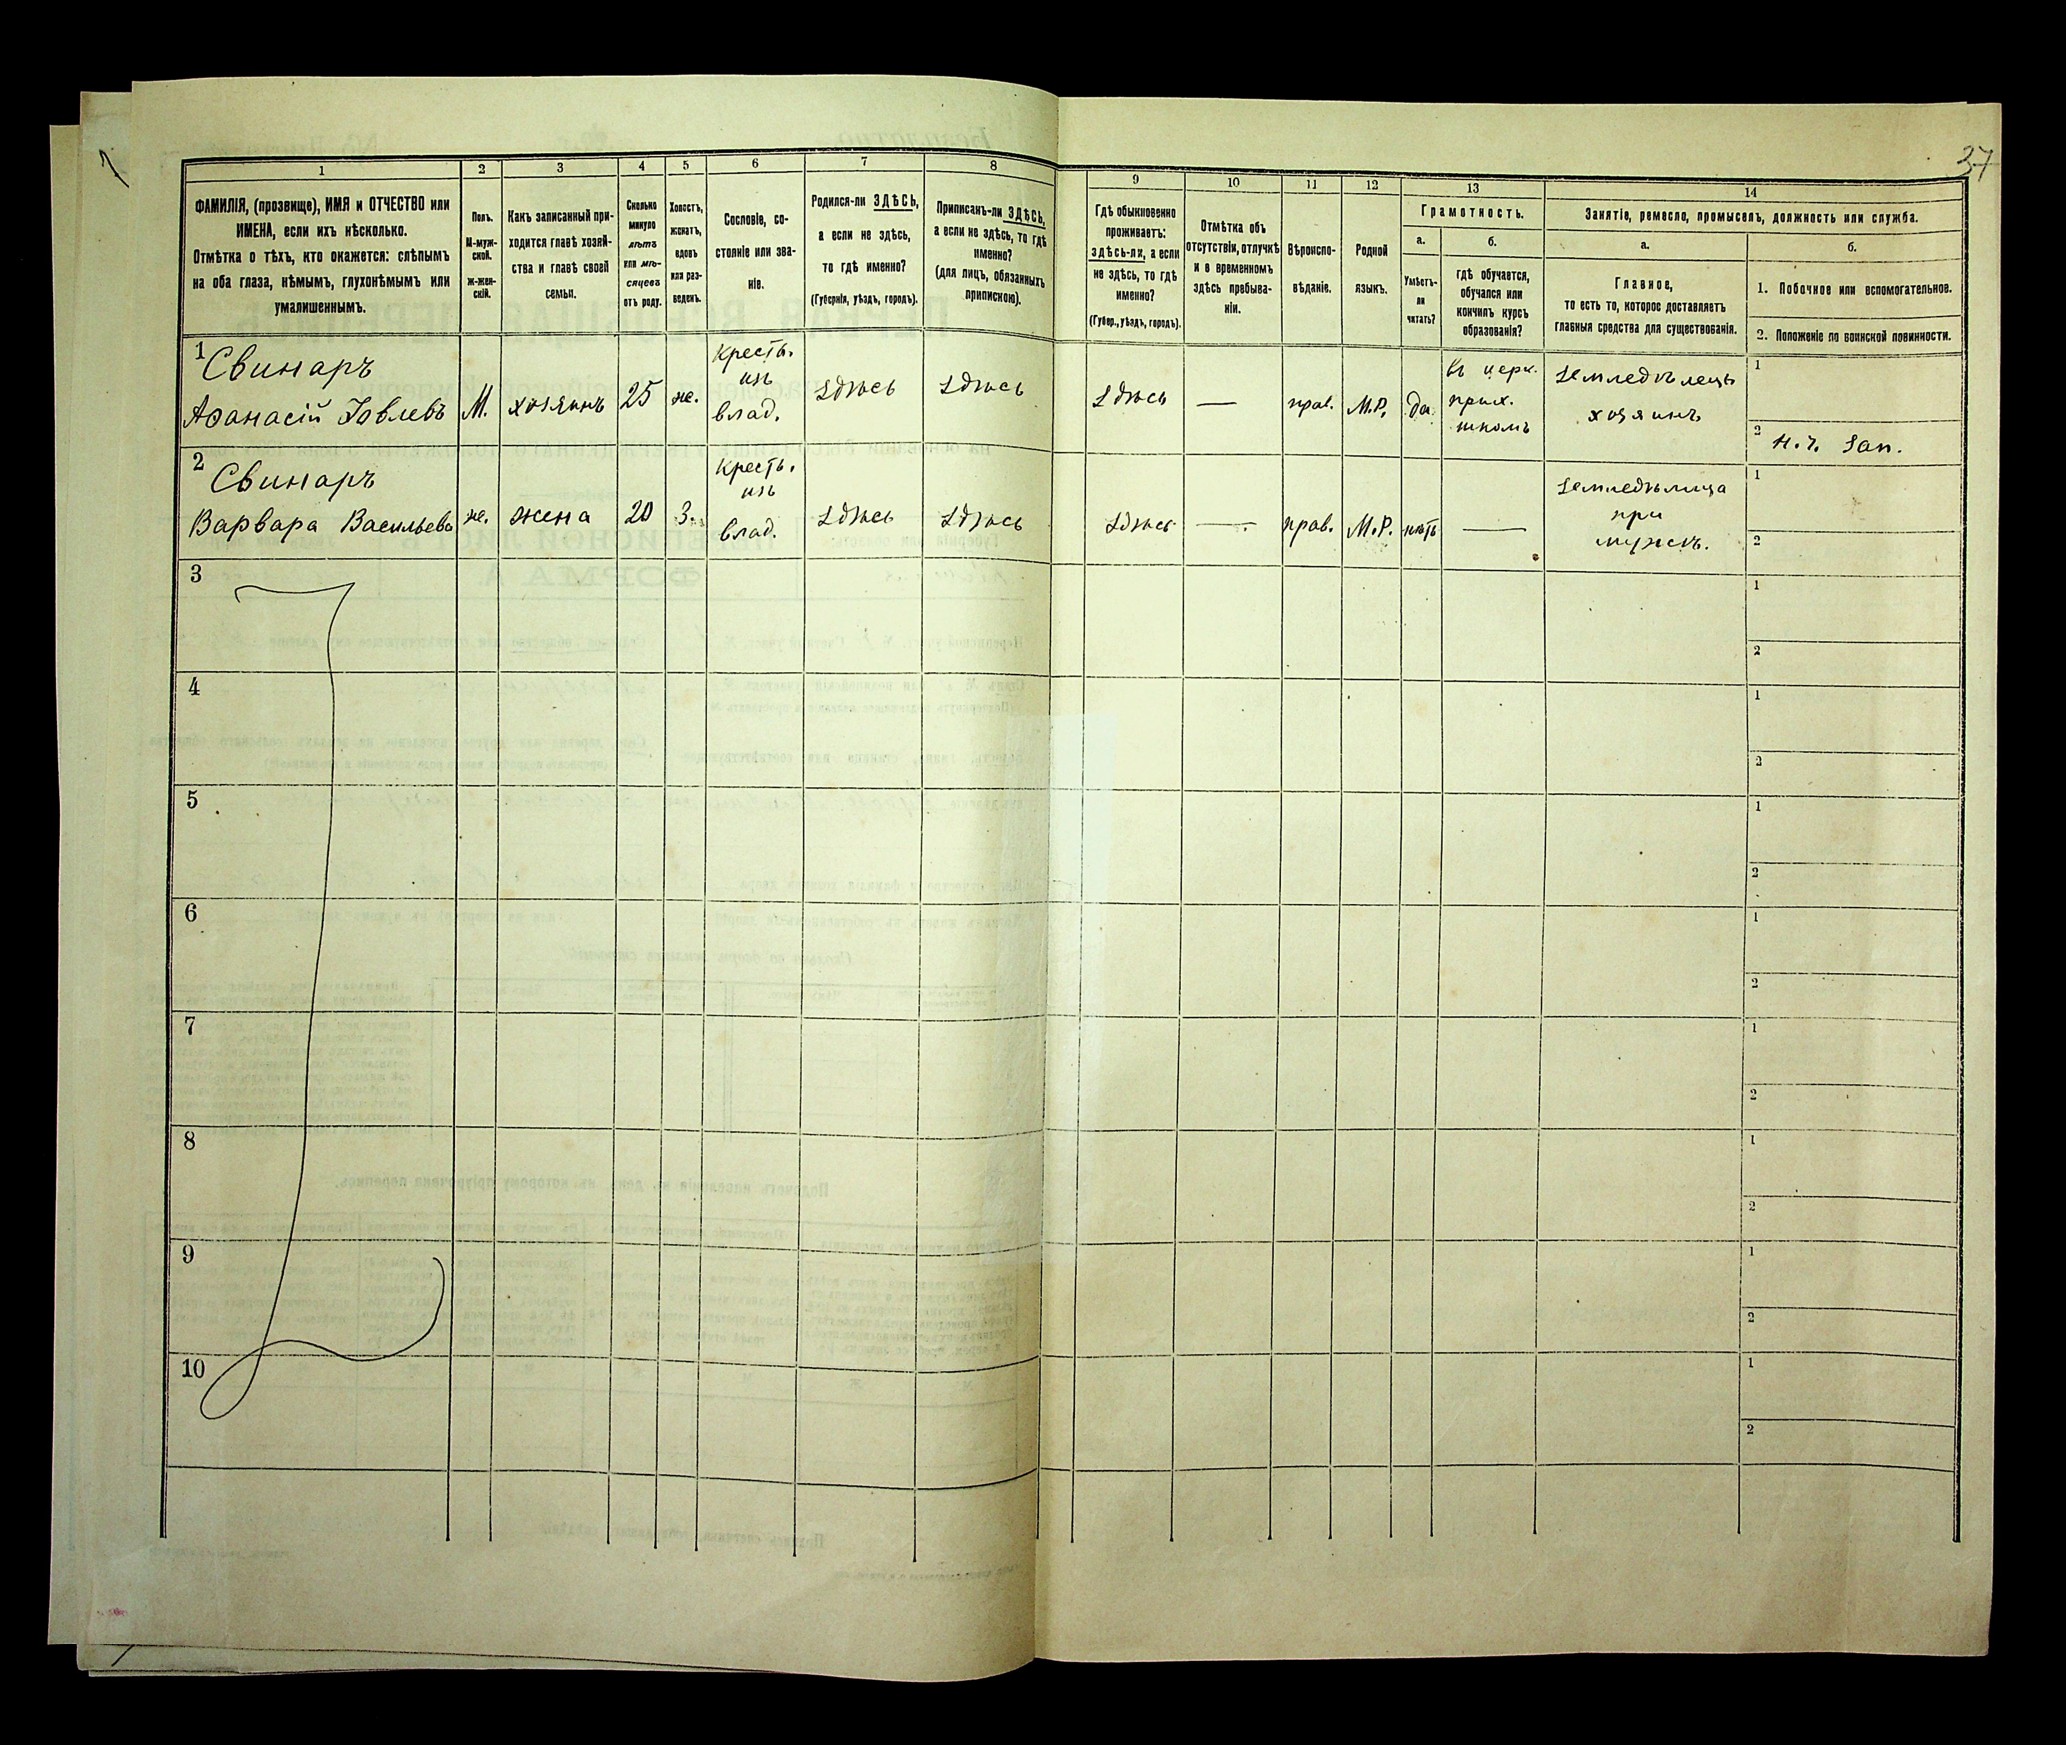 37
1 2 3 4 5 6 7 8 9 10 11 12 13 14
ФАМИЛІЯ, (прозвище), ИМЯ и ОТЧЕСТВО или
ИМЕНА, если ихъ нѣсколько.
Отмѣтка о тѣхъ, кто окажется: слѣпымъ
на оба глаза, нѣмымъ, глухонѣмымъ или
умалишеннымъ.
Полъ.
М-муж-
ской.
ж-жен-
скій.
Какъ записанный при-
ходится главѣ хозяй-
ства и главѣ своей
семьи.
Сколько
минуло
лѣтъ
или мѣ-
сяцевъ
отъ роду.
Холостъ,
женатъ,
вдовъ
или раз-
веденъ.
Сословіе, со-
стояніе или зва-
ніе.
Родился-ли ЗДѢСЬ,
а если не здѣсь,
то гдѣ именно?
(Губернія, уѣздъ, городъ).
Приписанъ-ли ЗДѢСЬ,
а если не здѣсь, то гдѣ
именно?
(для лицъ, обязанныхъ
припискою).
Гдѣ обыкновенно
проживаетъ:
здѣсь-ли, а если
не здѣсь, то гдѣ
именно?
(Губер., уѣздъ, городъ).
Отмѣтка объ
отсутствіи, отлучкѣ
и о временномъ
здѣсь пребыва-
ніи.
Вѣроиспо-
вѣданіе.
Родной
языкъ.
Грамотность.
а.
Умѣетъ-
ли
читать?
б.
гдѣ обучается,
обучался или
кончилъ курсъ
образованія?
Занятіе, ремесло, промыселъ, должность или служба.
а.
Главное,
то есть то, которое доставляетъ
главныя средства для существованія.
б.
1. Побочное или вспомогательное.
2. Положеніе по воинской повинности.
1 Свинаръ
Афанасій Іовлевъ
М.
хозяинъ
25
же.
кресть.
изъ
влад.
здѣсь
здѣсь
здѣсь
—
прав.
М.Р.
да
въ церк.
прих.
школѣ
земледѣлецъ
хозяинъ
1
2 н. ч. зап.
2 Свинаръ
Варвара Васильева
же.
жена
20
З.
кресть.
изъ
влад.
здѣсь
здѣсь
здѣсь
—
прав.
М.Р.
нѣтъ
—
земледѣлица
при
мужѣ.
1
2
3
1
2
4
1
2
5
1
2
6
1
2
7
1
2
8
1
2
9
1
2
10
1
2